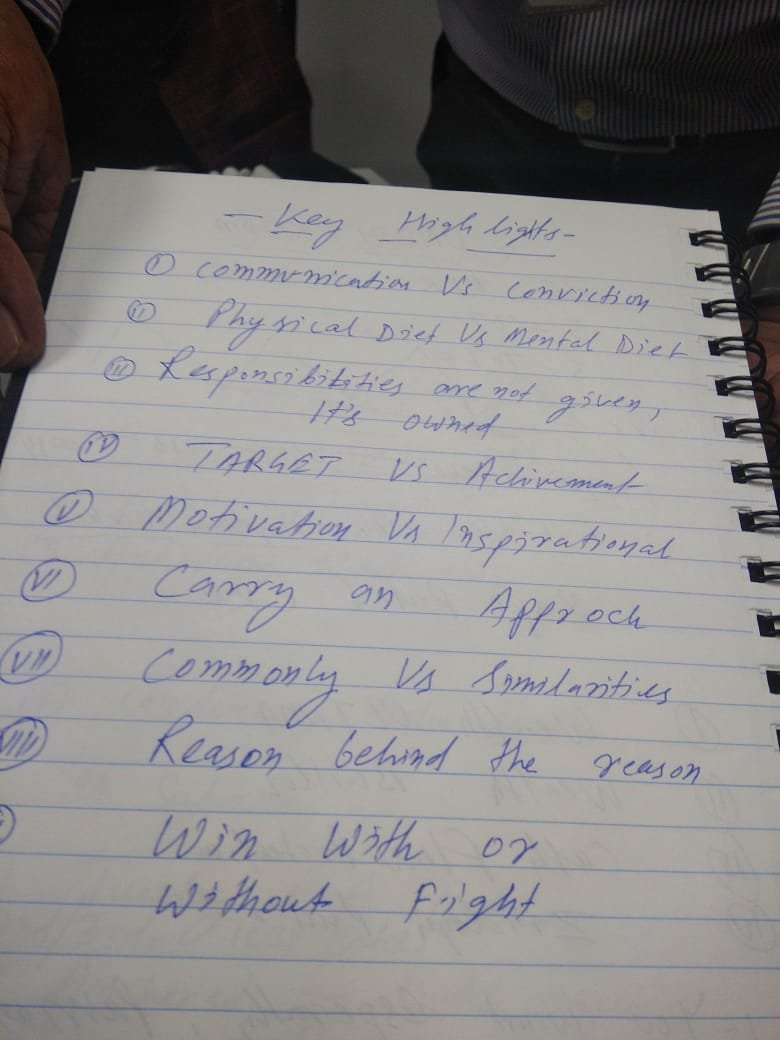 - Key Highlights -
(i) Communication Vs Conviction
(ii) Physical Diet Vs Mental Diet
(iii) Responsibilities are not given,
It's owned
(iv) TARGET VS Achivement
(v) Motivation Vs Inspirational
(VI) Carry an Approch
(VII) Commonly Vs Similarities
(VIII) Reason behind the reason
Win With or
Without Fight